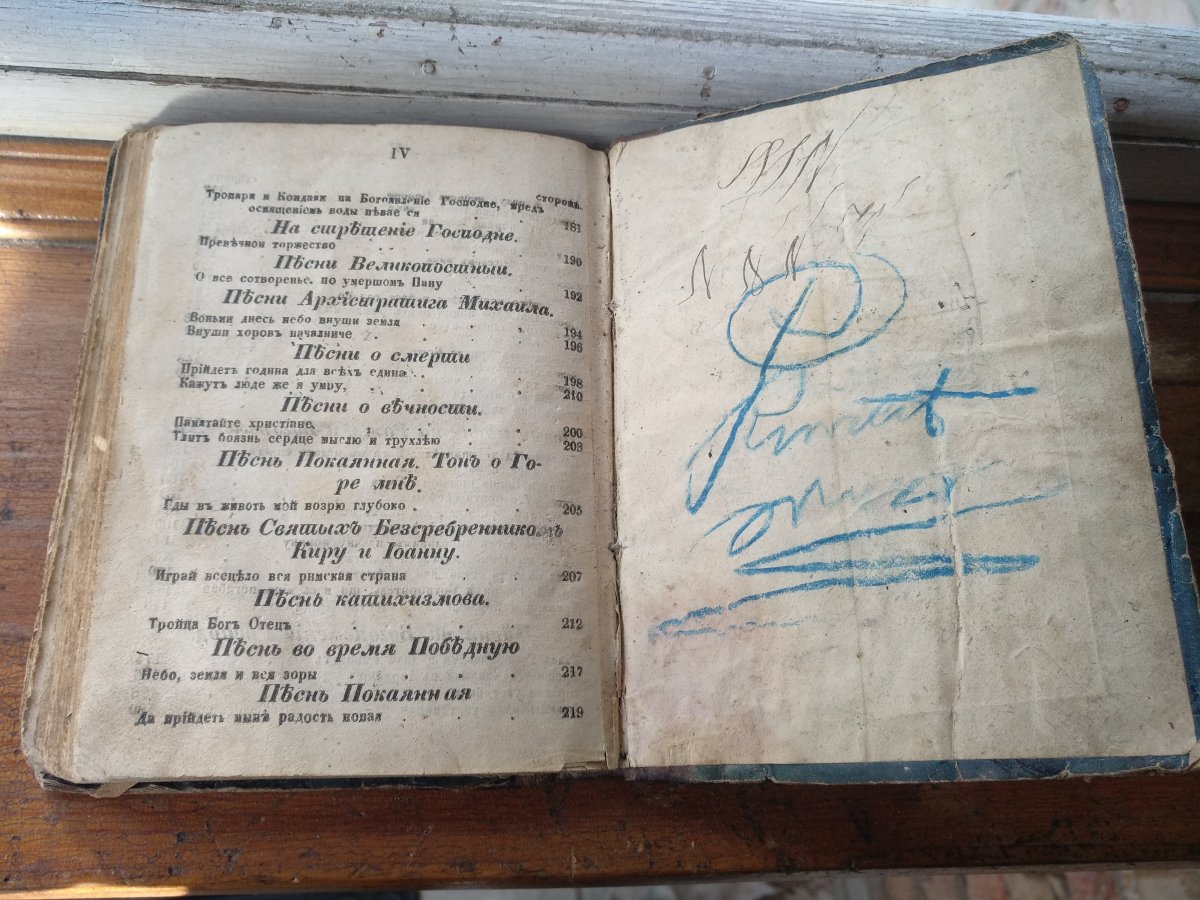 IV
сторона.
Тропари и Кондаки на Богоявленіе Господне, предъ
освященіемъ воды пѣвае ся . . . . 181
На стрѣтеніе Господне.
Превѣчном торжество . . . . 190
Пѣсни Великопостныи.
О все сотворенье, по умершомъ Пану . . . 192
Пѣсни Архістратига Михаила.
Воньми днесь небо внуши земля . . . 194
Внуши хоровъ началниче . . . . 196
Пѣсни о смерти
Прійдетъ година для всѣхъ едина . . . 198
Кажутъ люде же я умру, . . . . 210
Пѣсни о вѣчности.
Памятайте христіяне, . . . . 200
Тлитъ боязнь сердце мыслю и трухлѣю . . . 203
Пѣснь Покаянная. Тонъ о Го-
ре мнѣ.
Гды въ животь мой возрю глубоко . . . . 205
Пѣснь Святыхъ Безсребренниковъ
Киру и Іоанну.
Играй всецѣло вся римская страна . . . 207
Пѣснь катихизмова.
Тройца Богъ Отецъ . . . . . 212
Пѣснь во время Побѣдную
Небо, земля и вся зоры . . . . . 217
Пѣснь Покаянная
Да прійдеть нынѣ радость новая . . . 219